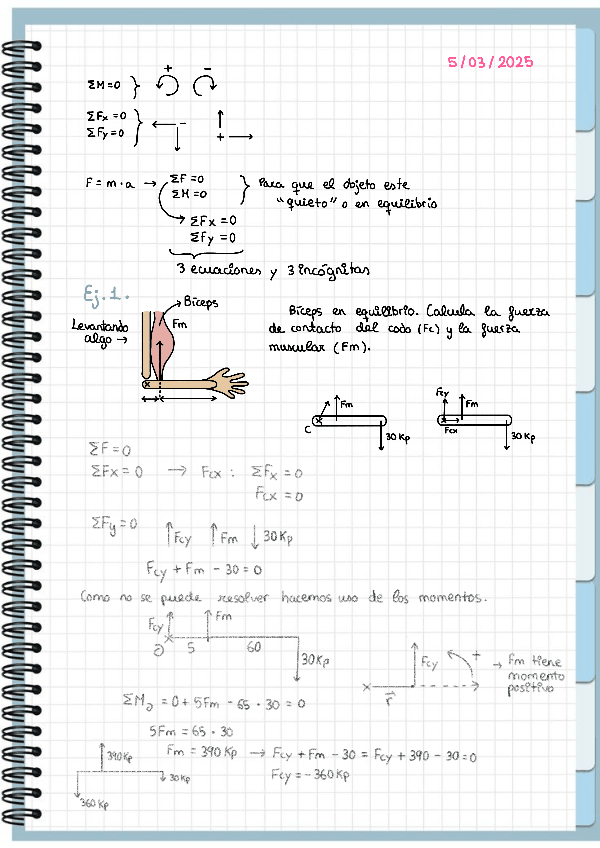 5/03/2025
+ −
ΣM=0 }
ΣFx =0
ΣFy =0 } − +
F = m·a → ΣF =0
ΣM =0 } Para que el objeto este
"quieto" o en equilibrio
ΣFx =0
ΣFy =0
3 ecuaciones y 3 incógnitas
Ej.1.
Levantando
algo →
Bíceps
Fm
Bíceps en equilibrio. Calcula la fuerza
de contacto del codo (Fc) y la fuerza
muscular (Fm).
Fm
C
30 Kp
Fcy
Fm
Fcx
30 Kp
ΣF=0
ΣFx = 0 → Fcx : ΣFx = 0
Fcx = 0
ΣFy=0 ↑Fcy ↑Fm ↓30Kp
Fcy + Fm - 30 = 0
Como no se puede resolver hacemos uso de los momentos.
Fcy
Fm
5 60
30Kp
Fcy
+
→ Fm tiene
momento
positivo
r
ΣM = 0 + 5Fm - 65 · 30 = 0
5Fm = 65 · 30
Fm = 390 Kp → Fcy + Fm - 30 = Fcy + 390 - 30 = 0
Fcy = - 360 Kp
390Kp
30Kp
360Kp